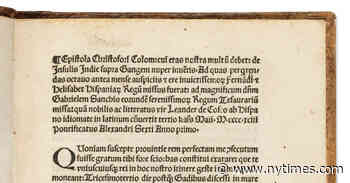 ¶Epistola Christofori Colom: cui etas nostra multū debet: de
Insulis Indie supra Gangem nuper inuētis. Ad quas perqren-
das octauo antea mense auspiciis et ere inuictissimoꝝ Fernādi et
Helisabet Hispaniaꝝ Regū missus fuerat: ad magnificum dñm
Gabrielem Sanchis eorundē serenissimoꝝ Regum Tesaurariū
missa: quā nobilis ac litteratus vir Leander de Cosco ab Hispa
no idiomate in latinum cōuertit tertio kals Maii M.cccc.xciii
Pontificatus Alexandri Sexti Anno primo.
QUoniam suscepte prouintie rem perfectam me ꝯsecutum
fuisse gratum tibi fore scio: has constitui exarare: que te
vniuscuiusqꝫ rei in hoc nostro itinere geste inuenteqꝫ ad-
moneant: Tricesimotertio die postqꝫ Gadibus discessi in mare
www.nytimes.com